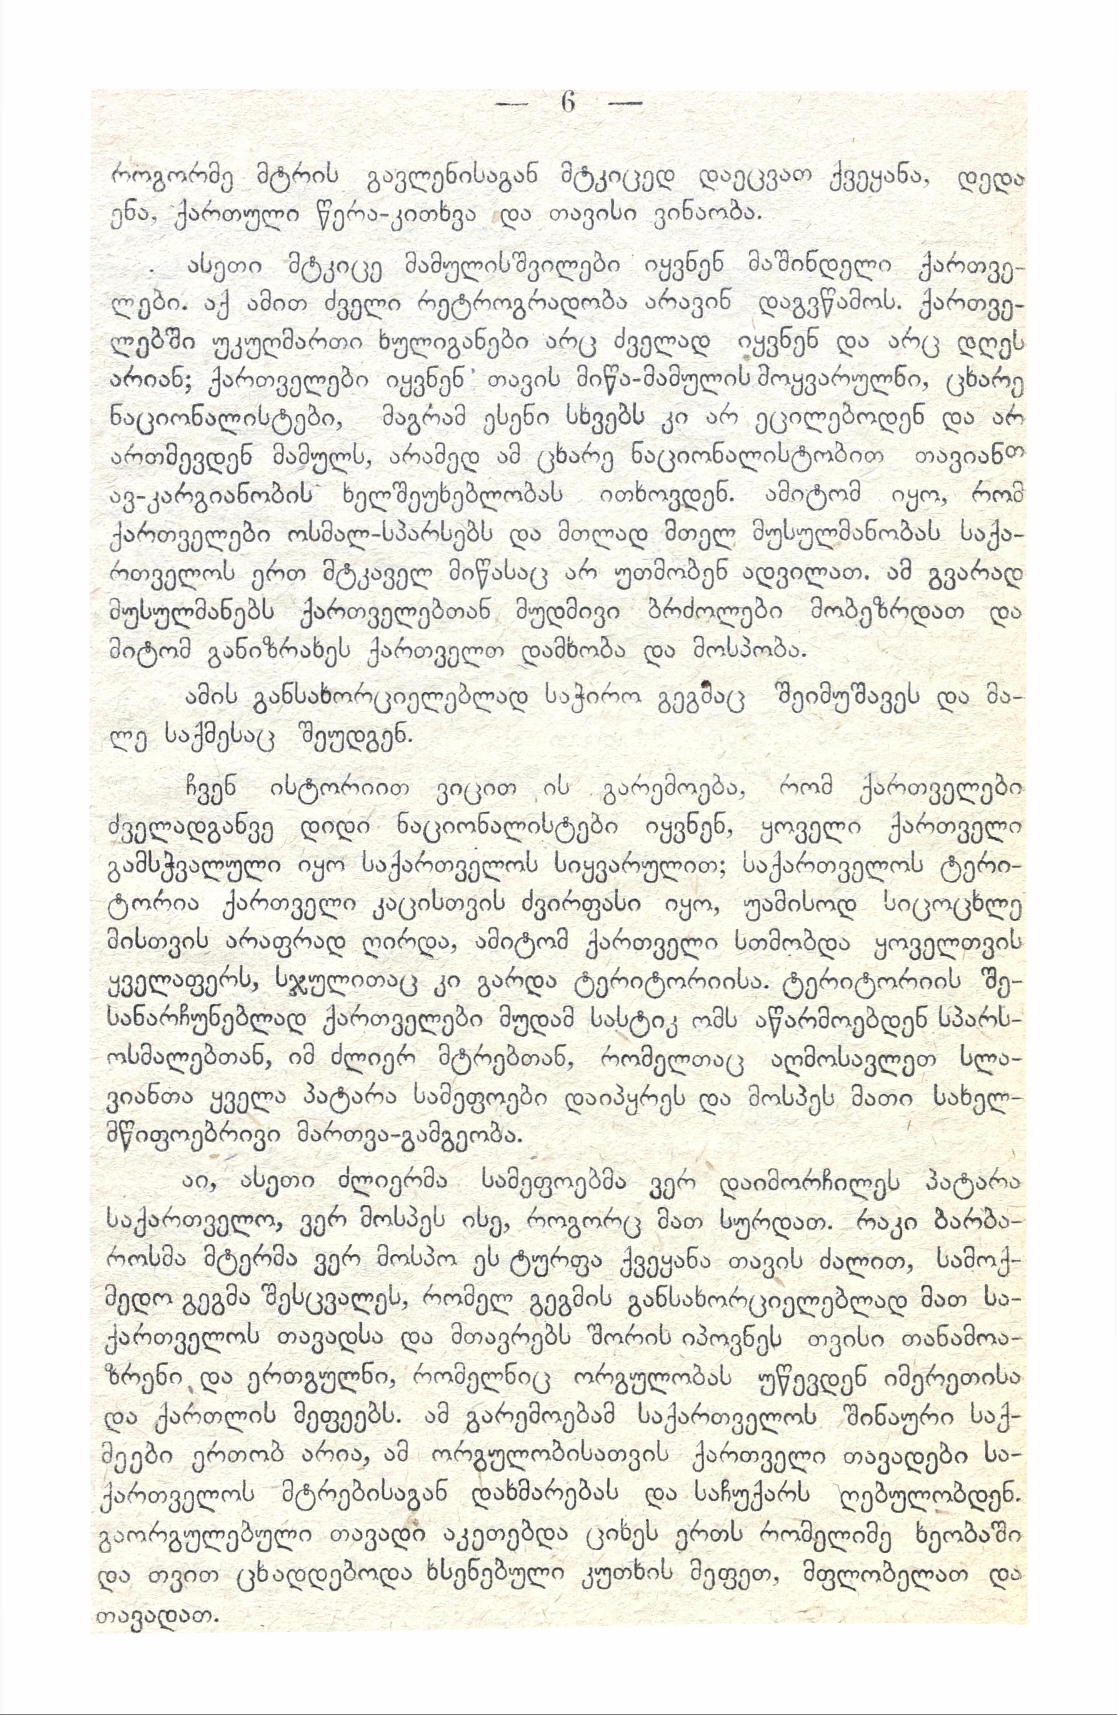 — 6 —
როგორმე მტრის გავლენისაგან მტკიცედ დაეცვათ ქვეყანა, დედა
ენა, ქართული წერა-კითხვა და თავისი ვინაობა.
ასეთი მტკიცე მამულისშვილები იყვნენ მაშინდელი ქართვე-
ლები. აქ ამით ძველი რეტროგრადობა არავინ დაგვწამოს. ქართვე-
ლებში უკუღმართი ხულიგანები არც ძველად იყვნენ და არც დღეს
არიან; ქართველები იყვნენ თავის მიწა-მამულის მოყვარულნი, ცხარე
ნაციონალისტები, მაგრამ ესენი სხვებს კი არ ეცილებოდენ და არ
ართმევდენ მამულს, არამედ ამ ცხარე ნაციონალისტობით თავიანთ
ავ-კარგიანობის ხელშეუხებლობას ითხოვდენ. ამიტომ იყო, რომ
ქართველები ოსმალ-სპარსებს და მთლად მთელ მუსულმანობას საქა-
რთველოს ერთ მტკაველ მიწასაც არ უთმობენ ადვილათ. ამ გვარად
მუსულმანებს ქართველებთან მუდმივი ბრძოლები მობეზრდათ და
მიტომ განიზრახეს ქართველთ დამხობა და მოსპობა.
ამის განსახორციელებლად საჭირო გეგმაც შეიმუშავეს და მა-
ლე საქმესაც შეუდგენ.
ჩვენ ისტორიით ვიცით ის გარემოება, რომ ქართველები
ძველადგანვე დიდი ნაციონალისტები იყვნენ, ყოველი ქართველი
გამსჭვალული იყო საქართველოს სიყვარულით; საქართველოს ტერი-
ტორია ქართველი კაცისთვის ძვირფასი იყო, უამისოდ სიცოცხლე
მისთვის არაფრად ღირდა, ამიტომ ქართველი სთმობდა ყოველთვის
ყველაფერს, სჯულითაც კი გარდა ტერიტორიისა. ტერიტორიის შე-
სანარჩუნებლად ქართველები მუდამ სასტიკ ომს აწარმოებდენ სპარს-
ოსმალებთან, იმ ძლიერ მტრებთან, რომელთაც აღმოსავლეთ სლა-
ვიანთა ყველა პატარა სამეფოები დაიპყრეს და მოსპეს მათი სახელ-
მწიფოებრივი მართვა-გამგეობა.
აი, ასეთი ძლიერმა სამეფოებმა ვერ დაიმორჩილეს პატარა
საქართველო, ვერ მოსპეს ისე, როგორც მათ სურდათ. რაკი ბარბა-
როსმა მტერმა ვერ მოსპო ეს ტურფა ქვეყანა თავის ძალით, სამოქ-
მედო გეგმა შესცვალეს, რომელ გეგმის განსახორციელებლად მათ სა-
ქართველოს თავადსა და მთავრებს შორის იპოვნეს თვისი თანამოა-
ზრენი და ერთგულნი, რომელნიც ორგულობას უწევდენ იმერეთისა
და ქართლის მეფეებს. ამ გარემოებამ საქართველოს შინაური საქ-
მეები ერთობ არია, ამ ორგულობისათვის ქართველი თავადები სა-
ქართველოს მტრებისაგან დახმარებას და საჩუქარს ღებულობდენ.
გაორგულებული თავადი აკეთებდა ციხეს ერთს რომელიმე ხეობაში
და თვით ცხადდებოდა ხსენებული კუთხის მეფეთ, მფლობელათ და
თავადათ.